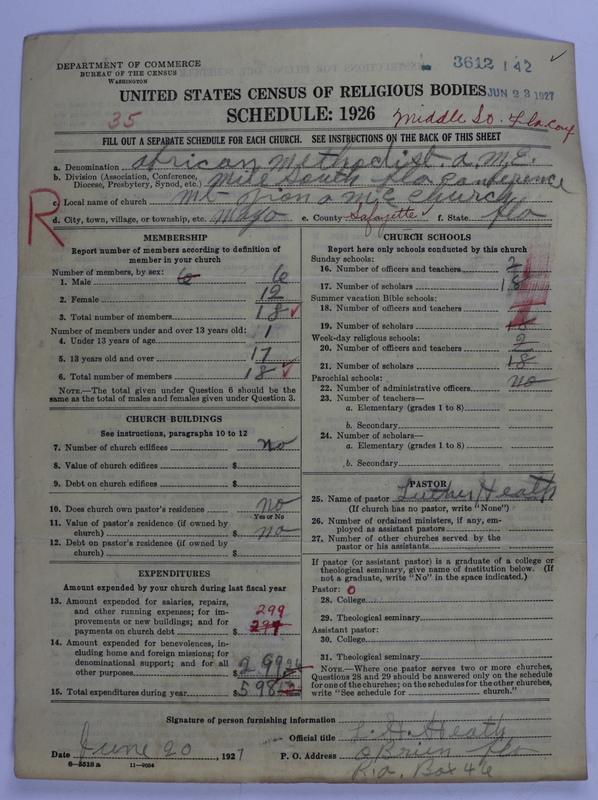 DEPARTMENT OF COMMERCE
BUREAU OF THE CENSUS
WASHINGTON
3612 142
UNITED STATES CENSUS OF RELIGIOUS BODIES JUN 23 1927
35
SCHEDULE: 1926 Middle So. Fla Conf
FILL OUT A SEPARATE SCHEDULE FOR EACH CHURCH. SEE INSTRUCTIONS ON THE BACK OF THIS SHEET
R
a. Denomination African Methodist A.M.E.
b. Division (Association, Conference, Diocese, Presbytery, Synod, etc.) South Fla Conference
c. Local name of church Mt Zion A M E Church
d. City, town, village, or township, etc. Mayo e. County Lafayette f. State Fla
MEMBERSHIP
Report number of members according to definition of
member in your church
Number of members, by sex:
1. Male 6 6
2. Female 12
3. Total number of members 18 ✓
Number of members under and over 13 years old:
4. Under 13 years of age 1
5. 13 years old and over 17
6. Total number of members 18 ✓
NOTE.—The total given under Question 6 should be the
same as the total of males and females given under Question 3.
CHURCH BUILDINGS
See instructions, paragraphs 10 to 12
7. Number of church edifices no
8. Value of church edifices $
9. Debt on church edifices $
10. Does church own pastor's residence no
Yes or No
11. Value of pastor's residence (if owned by
church) $ no
12. Debt on pastor's residence (if owned by
church) $
EXPENDITURES
Amount expended by your church during last fiscal year
13. Amount expended for salaries, repairs,
and other running expenses; for im-
provements or new buildings; and for
payments on church debt $ 299 299
14. Amount expended for benevolences, in-
cluding home and foreign missions; for
denominational support; and for all
other purposes $ 299
15. Total expenditures during year $ 598
CHURCH SCHOOLS
Report here only schools conducted by this church
Sunday schools:
16. Number of officers and teachers 2
17. Number of scholars 18
Summer vacation Bible schools:
18. Number of officers and teachers
19. Number of scholars 18
Week-day religious schools:
20. Number of officers and teachers 2
21. Number of scholars 18
Parochial schools:
22. Number of administrative officers no
23. Number of teachers—
a. Elementary (grades 1 to 8)
b. Secondary
24. Number of scholars—
a. Elementary (grades 1 to 8)
b. Secondary
PASTOR
25. Name of pastor Luther Heath
(If church has no pastor, write "None")
26. Number of ordained ministers, if any, em-
ployed as assistant pastors
27. Number of other churches served by the
pastor or his assistants
If pastor (or assistant pastor) is a graduate of a college or
theological seminary, give name of institution below. (If
not a graduate, write "No" in the space indicated.)
Pastor: 0
28. College
29. Theological seminary
Assistant pastor:
30. College
31. Theological seminary
NOTE.—Where one pastor serves two or more churches,
Questions 28 and 29 should be answered only on the schedule
for one of the churches; on the schedules for the other churches,
write "See schedule for church."
Signature of person furnishing information
Official title L. H. Heath
Date June 20, 1927 P. O. Address O'Brien Fla
8—5518 a 11—9054 R.a. Box 46